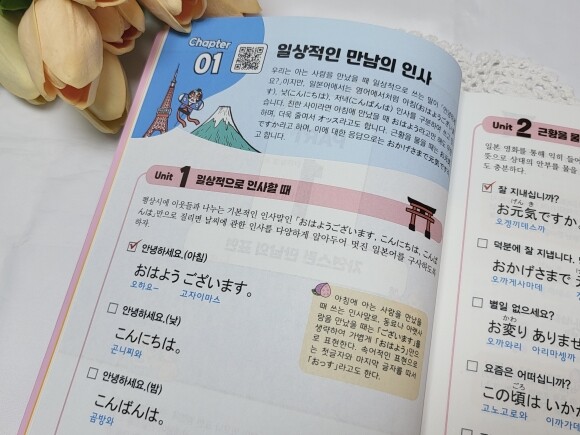 Chapter
01
일상적인 만남의 인사
우리는 아는 사람을 만났을 때 일상적으로 쓰는 말이
요?」이지만, 일본어에서는 영어에서처럼 아침(おはようござ
す), 낮(こんにちは), 저녁(こんばんは) 인사를 구분하여
습니다. 친한 사이라면 아침에 만났을 때 おはよう라고만
하며, 더욱 줄여서 オッス라고도 합니다. 근황을 물을 때는
ですか라고 하며, 이에 대한 응답으로는 おかげさまで元気です
고 합니다.
Unit 1 일상적으로 인사할 때
평상시에 이웃들과 나누는 기본적인 인사말인 「おはようございます, こんにちは, こんば
んは」만으로 질리면 날씨에 관한 인사를 다양하게 알아두어 멋진 일본어를 구사하도록
하자.
안녕하세요.(아침)
おはよう ございます。
오하요- 고자이마스
안녕하세요.(낮)
こんにちは。
곤니찌와
안녕하세요.(밤)
こんばんは。
곰방와
아침에 아는 사람을 만났을
때 쓰는 인사말로, 동료나 아랫사
람을 만났을 때는 「ございます」를
생략하여 가볍게 「おはよう」만으
로 표현한다. 속어적인 표현으로
는 첫글자와 마지막 글자를 따서
「おっす」라고도 한다.
Unit 2 근황을 물
일본 영화를 통해 익히 들어
뜻으로 상대의 안부를 물을
도 충분하다.
잘 지내십니까?
げん き
お元気ですか
오겡끼데스까
덕분에 잘 지냅니다.
おかげさまで 元
오까게사마데
별일 없으세요?
かわ
お変り ありませ
오까와리 아리마셍까
요즘은 어떠십니까?
ごろ
この頃は いかが
고노고로와 이까가데